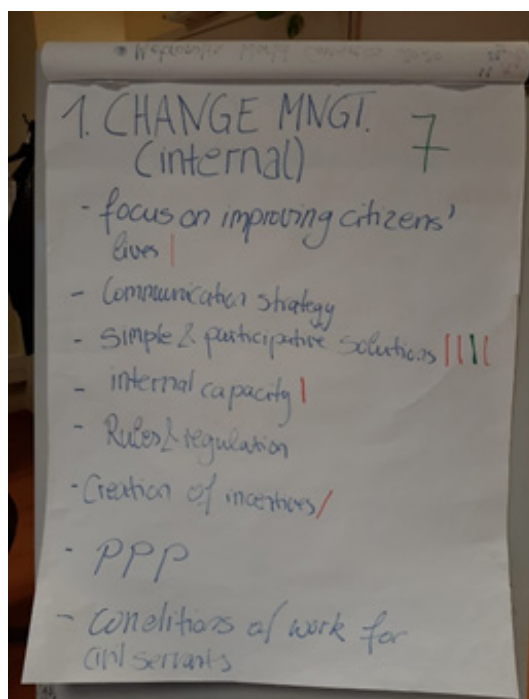 1. CHANGE MNGT.
(internal)
7
- focus on improving citizens'
lives |
- Communication strategy
- Simple & participative solutions ||||
- internal capacity |
- Rules & regulation
- Creation of incentives /
- PPP
- Conditions of work for
civil servants